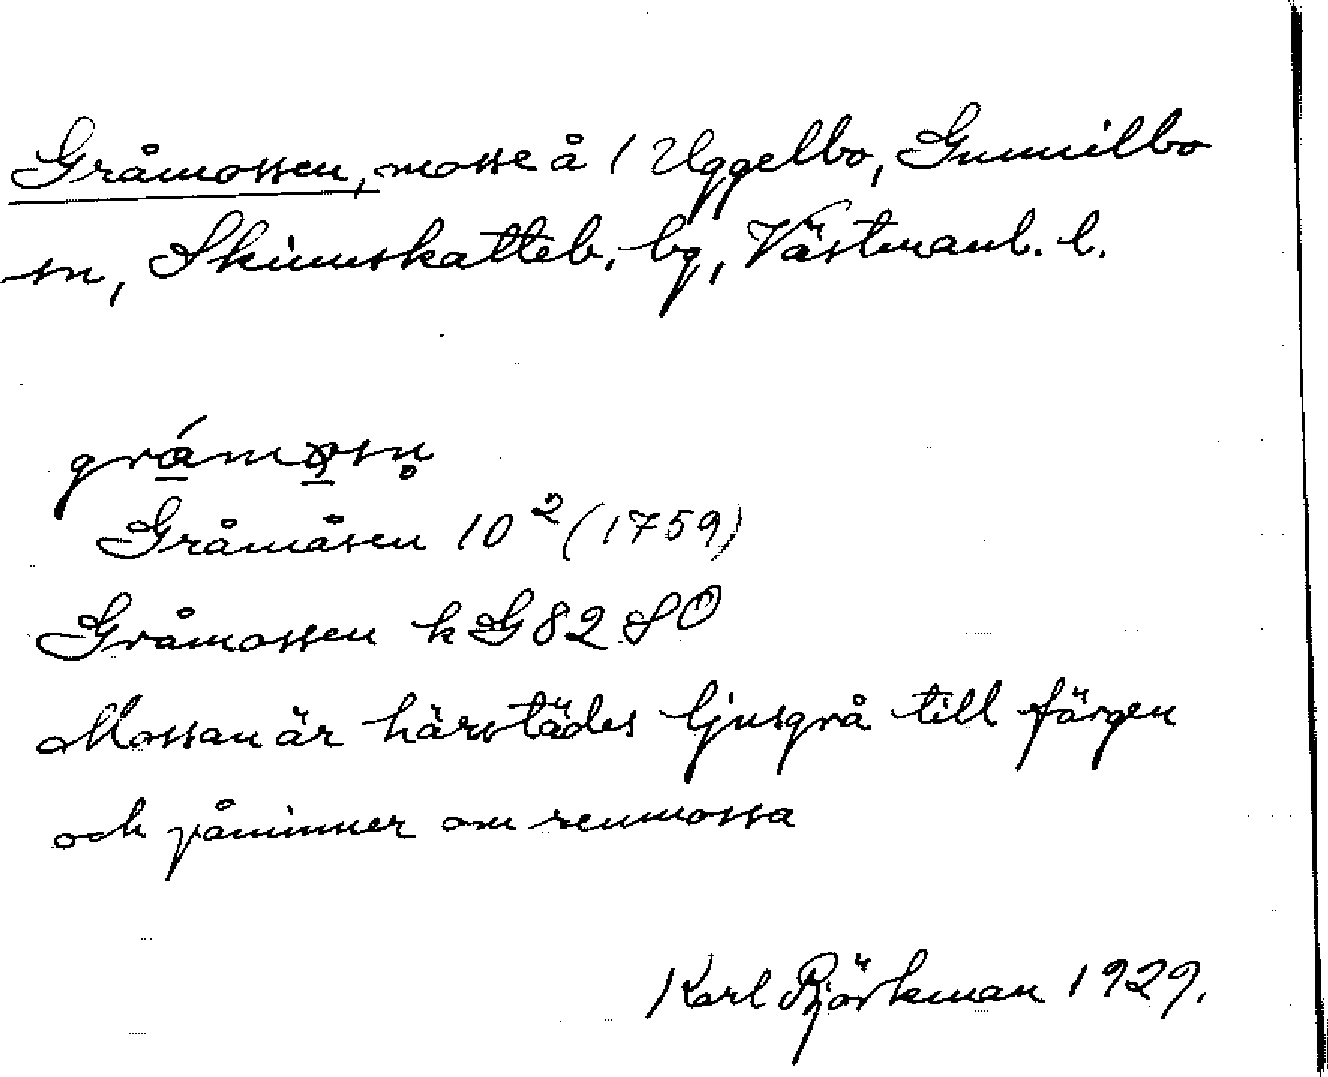 Gråmossen, mosse å 1 Uggelbo, Gunnilbo
sn, Skinnskatteb. bg, Västmanl. l.
Gråmåsen 10² (1759)
Gråmossen k G82 SO
Mossan är härstädes ljusgrå till färgen
och påminner om renmossa
Karl Björkman 1929.